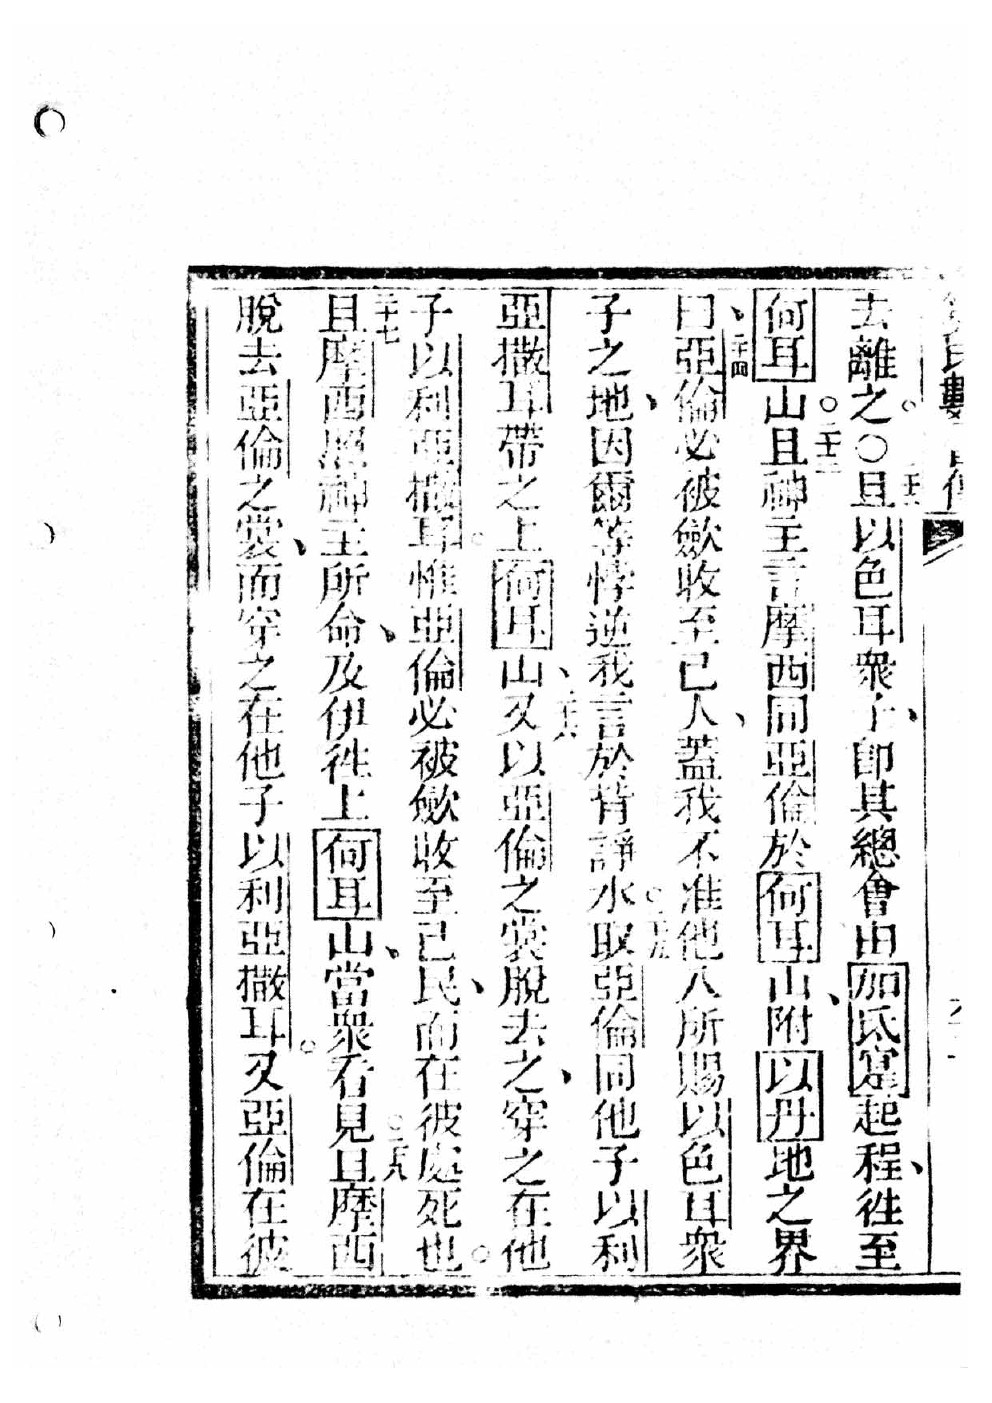 數
去離之○且以色耳衆子卽其總會由加氐寔起程徃至
何耳山二十三且神主言摩西同亞倫於何耳山附以丹地之界
曰二十四亞倫必被歛收至己人蓋我不准他人所賜以色耳衆
子之地因爾等悖逆我言於背諍水二十五取亞倫同他子以利
亞撒耳帶之上何耳山二十六又以亞倫之裳脫去之穿之在他
子以利亞撒耳惟亞倫必被歛收至己民而在彼處死也
二十七且摩西照神主所命及伊徃上何耳山當衆看見二十八且摩西
脫去亞倫之裳而穿之在他子以利亞撒耳又亞倫在彼